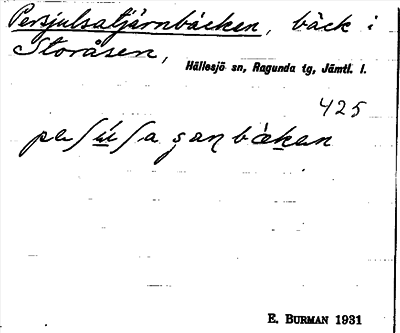 Persjulsatjärnbäcken, bäck i
Storåsen,
Hällesjö sn, Ragunda tg, Jämtl. l.
425
E. BURMAN 1931